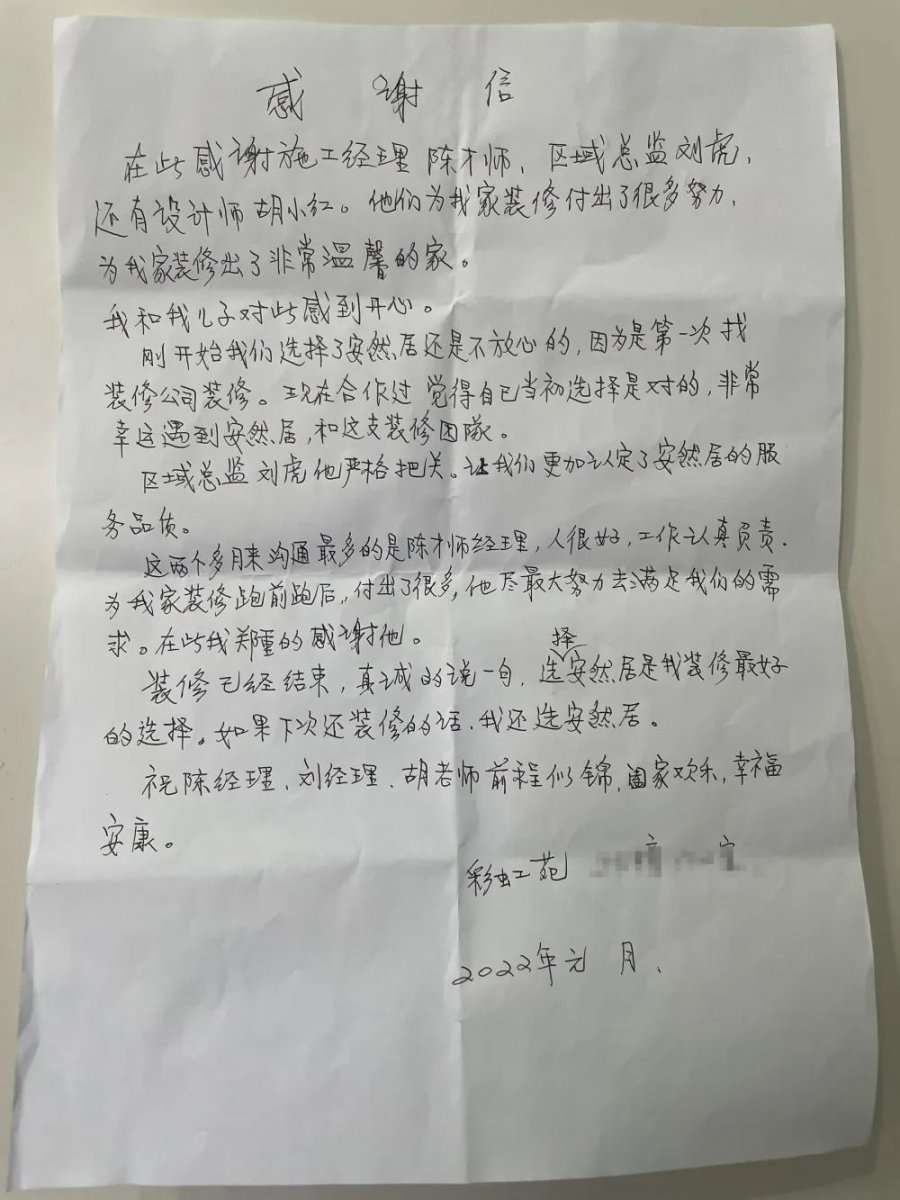 感谢信
在此感谢施工经理陈才师、区域总监刘虎、
还有设计师胡小红。他们为我家装修付出了很多努力、
为我家装修出了非常温馨的家。
我和我儿子对此感到开心。
刚开始我们选择了安然居还是不放心的,因为是第一次找
装修公司装修。现在合作过觉得自已当初选择是对的,非常
幸运遇到安然居,和这支装修团隊。
区域总监刘虎他严格把关。让我们更加认定了安然居的服
务品质。
这两个多月来沟通最多的是陈才师经理,人很好,工作认真负责.
为我家装修跑前跑后,付出了很多,他尽最大努力去满足我们的需
求。在此我郑重的感谢他。
装修已经结束,真诚的说一句,选择安然居是我装修最好
的选择。如果下次还装修的话、我还选安然居。
祝陈经理、刘经理、胡老师前程似锦,阖家欢乐,幸福
安康。
彩虹苑
2022年元月、